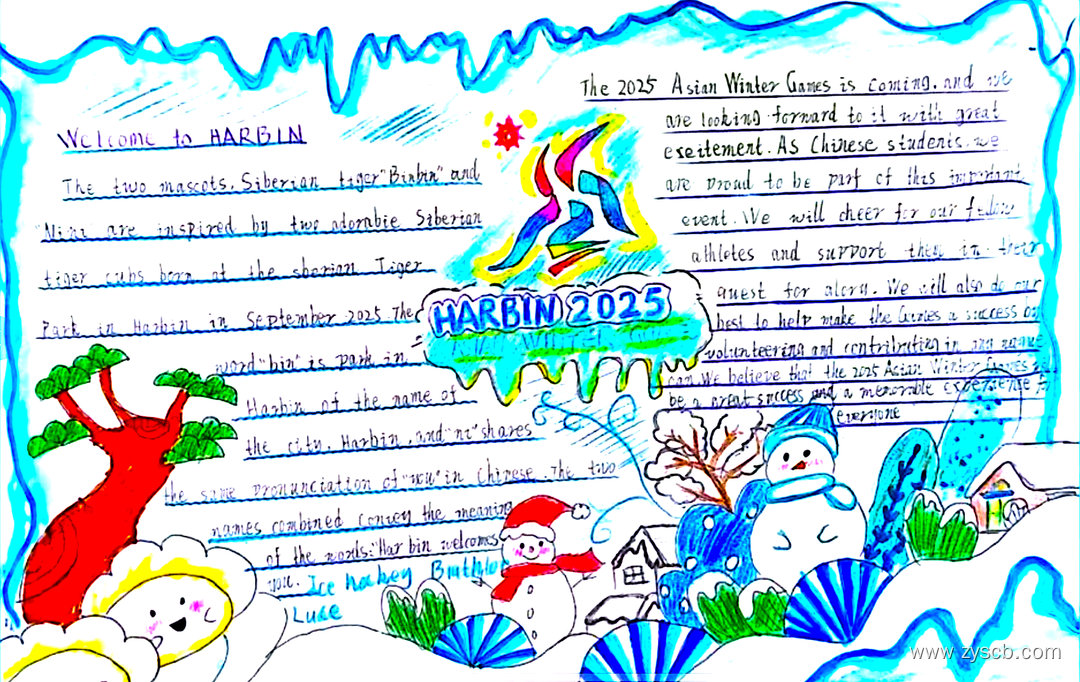 Welcome to HARBIN
The two mascots, Siberian tiger "Binbin" and
"Nini are inspired by two adorable Siberian
tiger cubs born at the sberian Tiger
Park in Harbin in September 2025 The
word "bin" is park in
Harbin of the name of
the city, Harbin, and "ni" shares
the same pronunciation of "you" in Chinese. The two
names combined convey the meaning
of the words: "Harbin welcomes
you. Ice hockey Biathlon
Luge
HARBIN 2025
ASIAN WINTER GAMES
The 2025 Asian Winter Games is coming, and we
are looking forward to it with great
exeitement. As Chinese students, we
are proud to be part of this important
event. We will cheer for our fellow
athletes and support them in their
quest for glory. We will also do our
best to help make the Games a success by
volunteering and contributing in any
can. We believe that the 2025 Asian Winter Games
be a great success and a memorable experience
everyone
www.zyscb.com